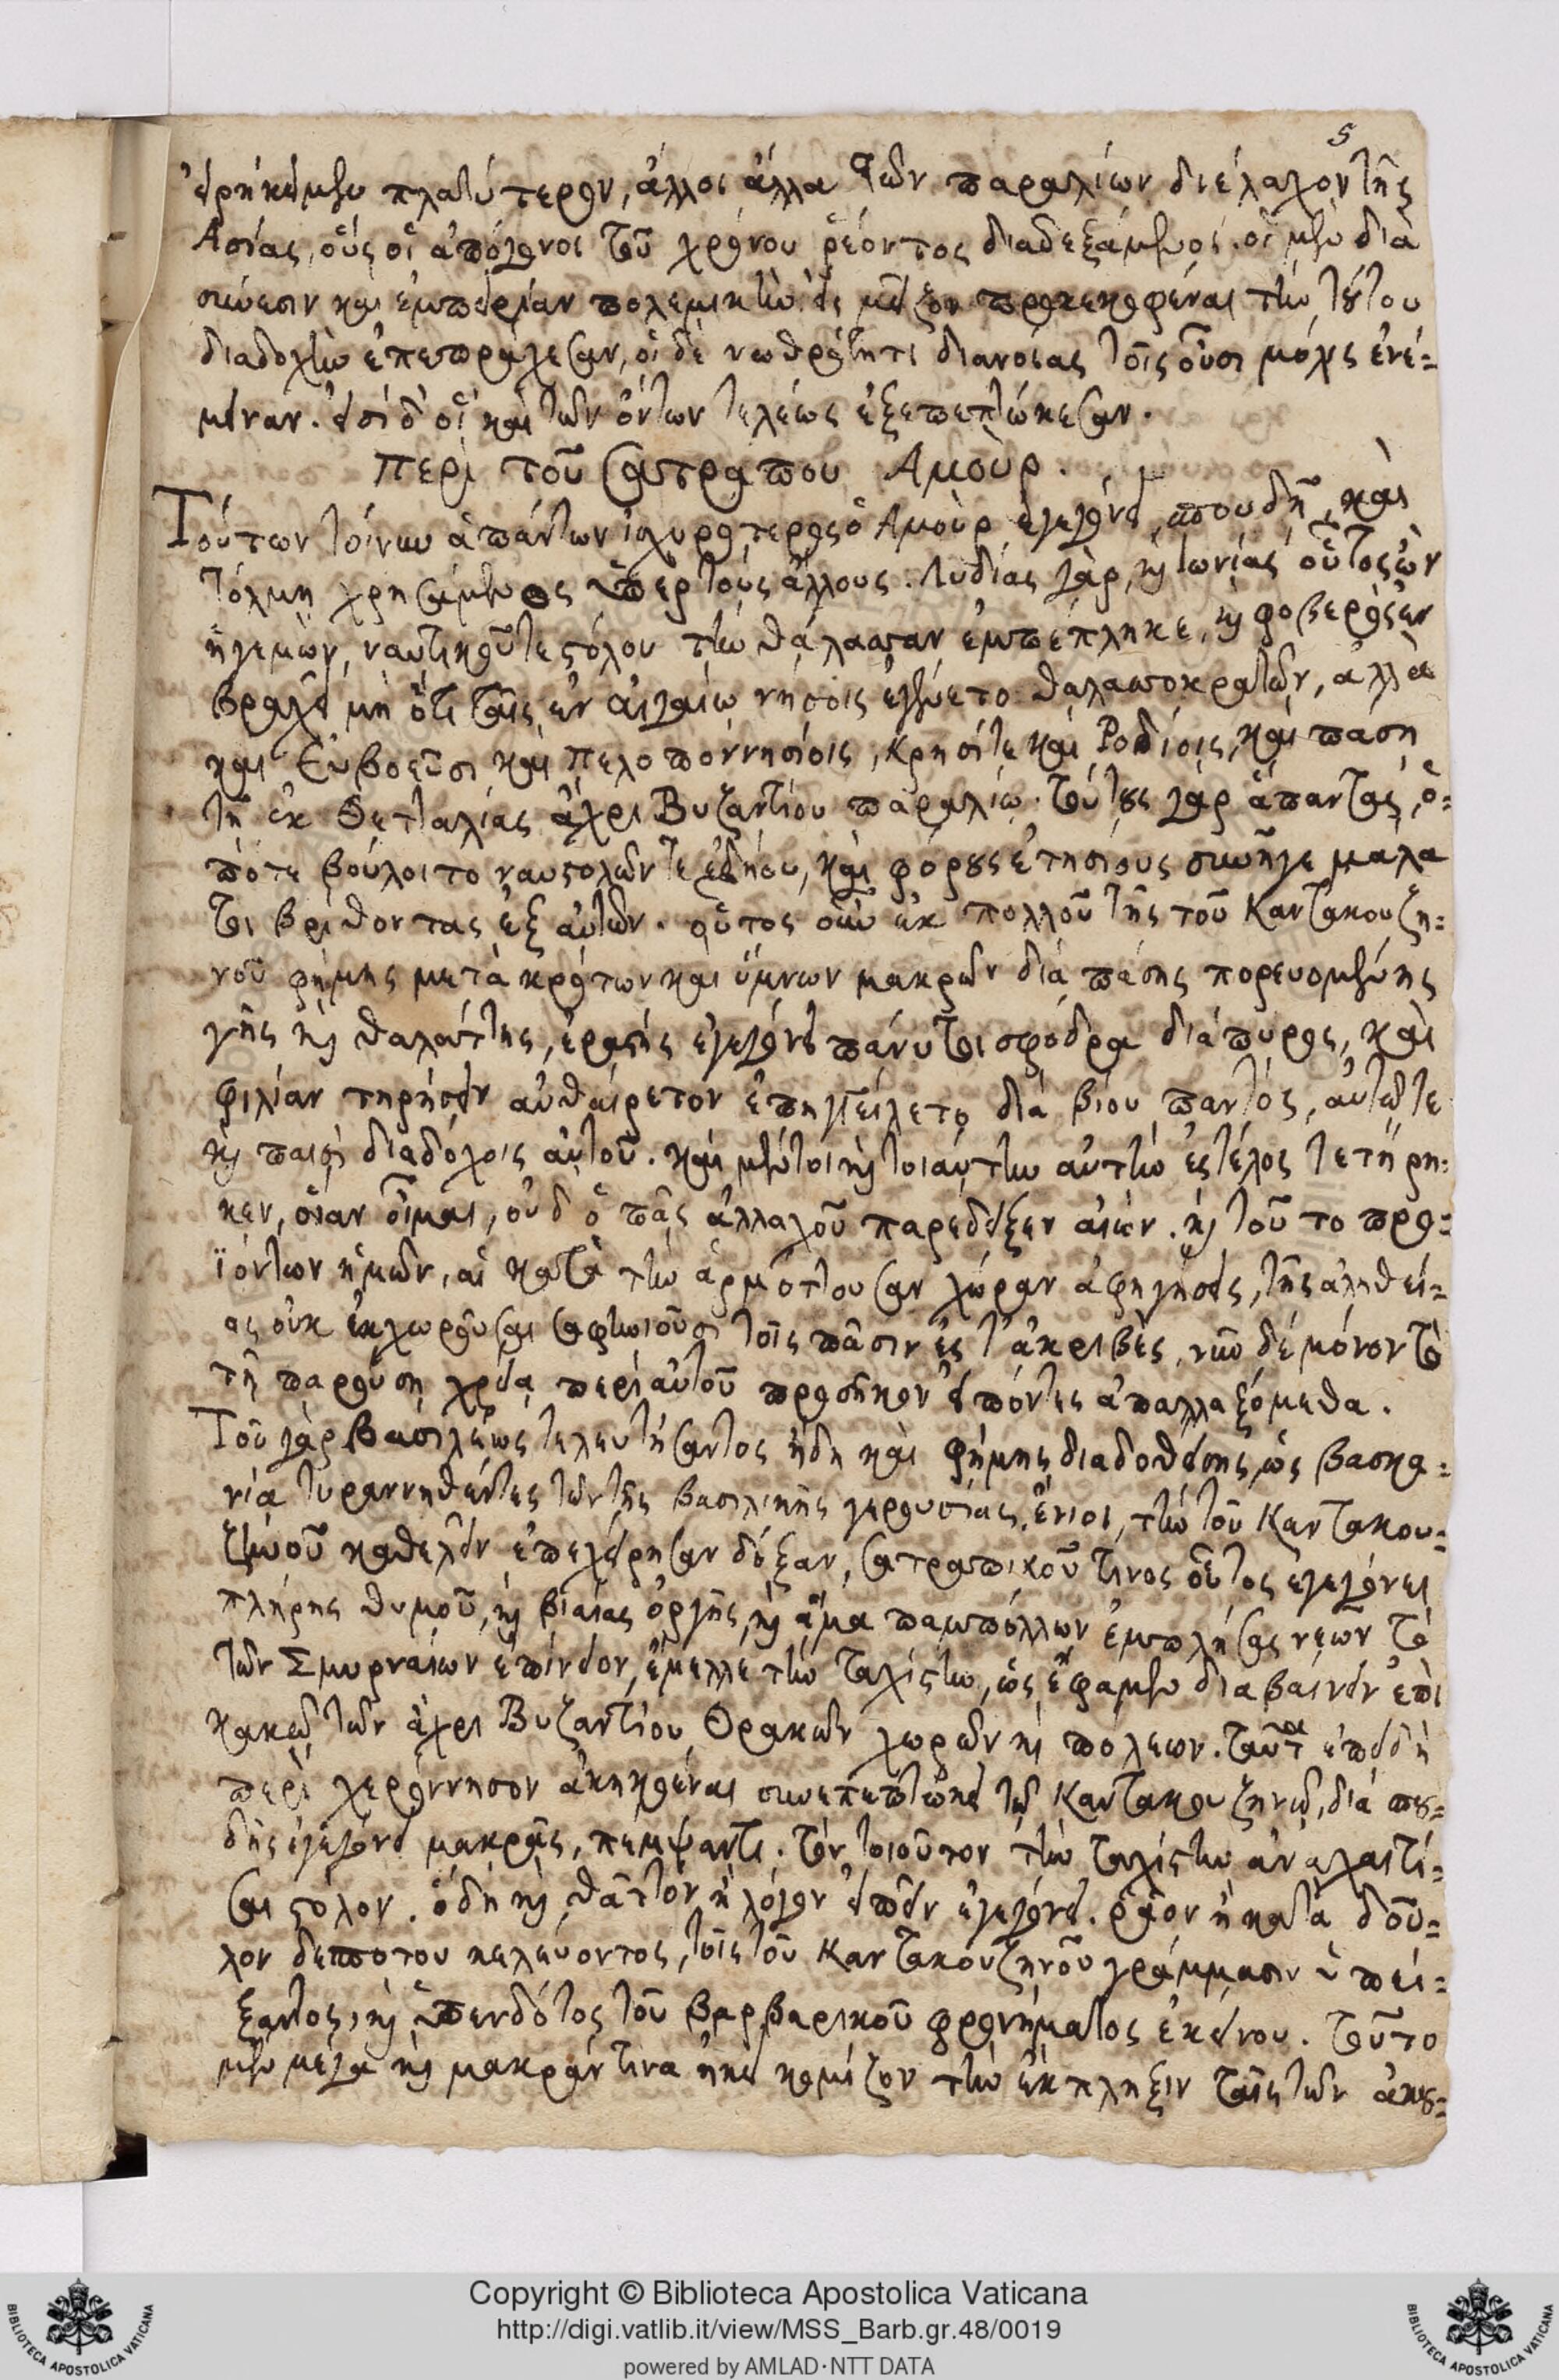 5
εἰρήκειμεν πλατύτερον, ἄλλοι ἄλλα τῶν παραλίων διέλαχον τῆς
Ἀσίας, οὓς οἱ ἀπόγονοι τοῦ χρόνου ῥέοντος διαδεξάμενοι. οἱ μὲν διὰ
σύνεσιν καὶ ἐμπειρίαν πολεμικὴν εἰς μεῖζον προκεκοφέναι τὴν τούτου
διαδοχὴν ἐπεπράχεσαν, οἱ δὲ νωθρότητι διανοίας τοῖς οὖσι μόλις ἐνέ-
μειναν. εἰσὶ δ' οἳ καὶ τῶν ὄντων τελέως ἐξεπεπτώκεσαν.
Περὶ τοῦ σατραπου Ἀμούρ.
Τούτων τοίνυν ἁπάντων ἰσχυρότερος ὁ Ἀμοὺρ ἐγεγόνει, σπουδῇ, καὶ
τόλμῃ χρησάμενος ὑπὲρ τοὺς ἄλλους. Λυδίας γὰρ, καὶ Ἰωνίας οὗτος ὢν
ἡγεμὼν, ναυτικοῦ τε στόλου τὴν θάλασσαν ἐμπέπληκε, καὶ φοβερὸς ἐν
βραχεῖ μὴ ὅτι ταῖς ἐν αἰγαίῳ νήσοις ἐγένετο θαλασσοκρατῶν, ἀλλὰ
καὶ Εὐβοεῦσι καὶ Πελοποννησίοις, Κρησί τε καὶ Ῥοδίοις, καὶ πάσῃ
τῇ ἐκ Θετταλίας ἄχρι Βυζαντίου παραλίῳ. τούτους γὰρ ἅπαντας, ὁ-
πότε βούλοιτο ναυστολῶν τε ἐδῄου, καὶ φόρους ἐτησίους συνῆγε μάλα
τοι βρίθοντας ἐξ αὐτῶν. οὗτος οὖν ἐκ πολλοῦ τῆς τοῦ Καντακουζη-
νοῦ φήμης μετὰ κρότων καὶ ὕμνων μακρῶν διὰ πάσης πορευομένης
γῆς καὶ θαλάττης, ἐραστὴς ἐγεγόνει πάνυ τοι σφόδρα διάπυρος, καὶ
φιλίαν τηρήσειν αὐθαίρετον ἐπηγγείλετο διὰ βίου παντὸς, αὐτῷ τε
καὶ παισὶ διαδόχοις αὐτοῦ. καὶ μέντοι καὶ τοιαύτην αὐτὴν ἐς τέλος τετήρη-
κεν, οἵαν οἶμαι, οὐδ' ὁ πᾶς ἀλλαχοῦ παρέδειξεν αἰών. καὶ τοῦτο προ-
ϊόντων ἡμῶν, αἱ κατὰ τὴν ἁρμόττουσαν χώραν ἀφηγήσεις, τῆς ἀληθεί-
ας οὐκ ἐκχωροῦσαι σαφηνιοῦσι τοῖς πᾶσιν ἐς τ' ἀκριβὲς, νῦν δὲ μόνον τὸ
τῇ παρούσῃ χρείᾳ περὶ αὐτοῦ προσῆκον εἰπόντες ἀπαλλαξόμεθα.
Τοῦ γὰρ βασιλέως τελευτήσαντος ἤδη καὶ φήμης διαδοθείσης, ὡς βασκα-
νίᾳ τυραννηθέντες τῶν τῆς βασιλικῆς γερουσίας ἔνιοι, τὴν τοῦ Καντακου-
ζηνοῦ καθελεῖν ἐπεχείρησαν δόξαν, σατραπικοῦ τινος οὗτος ἐγεγόνει
πλήρης θυμοῦ, καὶ βιαίας ὀργῆς, καὶ ἅμα παμπόλλων ἐμπλήσας νεῶν τὸ
τῶν Σμυρναίων ἐπίνειον, ἔμελλε τὴν ταχίστην, ὡς ἔφαμεν διαβαίνειν ἐπὶ
κακῷ τῶν ἄχρι Βυζαντίου Θρακῶν χωρῶν καὶ πόλεων. ταῦτα ἐπειδὴ
περὶ χερόννησον ἀκηκοέναι συνεπεπτώκει τῷ Καντακουζηνῷ, διὰ σπου-
δῆς ἐγεγόνει μακρᾶς, πέμψαντι. τὸν τοιοῦτον τὴν ταχίστην ἀναχαιτί-
σαι στόλον. ὃ δὴ καὶ θᾶττον ἢ λόγον εἰπεῖν ἐγεγόνει. ῥᾷον ἢ κατὰ δοῦ-
λον δεσπότου κελεύοντος, τοῖς τοῦ Καντακουζηνοῦ γράμμασιν ὑπεί-
ξαντος, καὶ ὑπενδότος τοῦ βαρβαρικοῦ φρονήματος ἐκείνου. τοῦτο
μὲν μέγα καὶ μακράν τινα ἧκε κομίζον τὴν ἔκπληξιν ταῖς τῶν ἀκου-
Copyright © Biblioteca Apostolica Vaticana
http://digi.vatlib.it/view/MSS_Barb.gr.48/0019
powered by AMLAD·NTT DATA
BIBLIOTECA APOSTOLICA VATICANA
BIBLIOTECA APOSTOLICA VATICANA